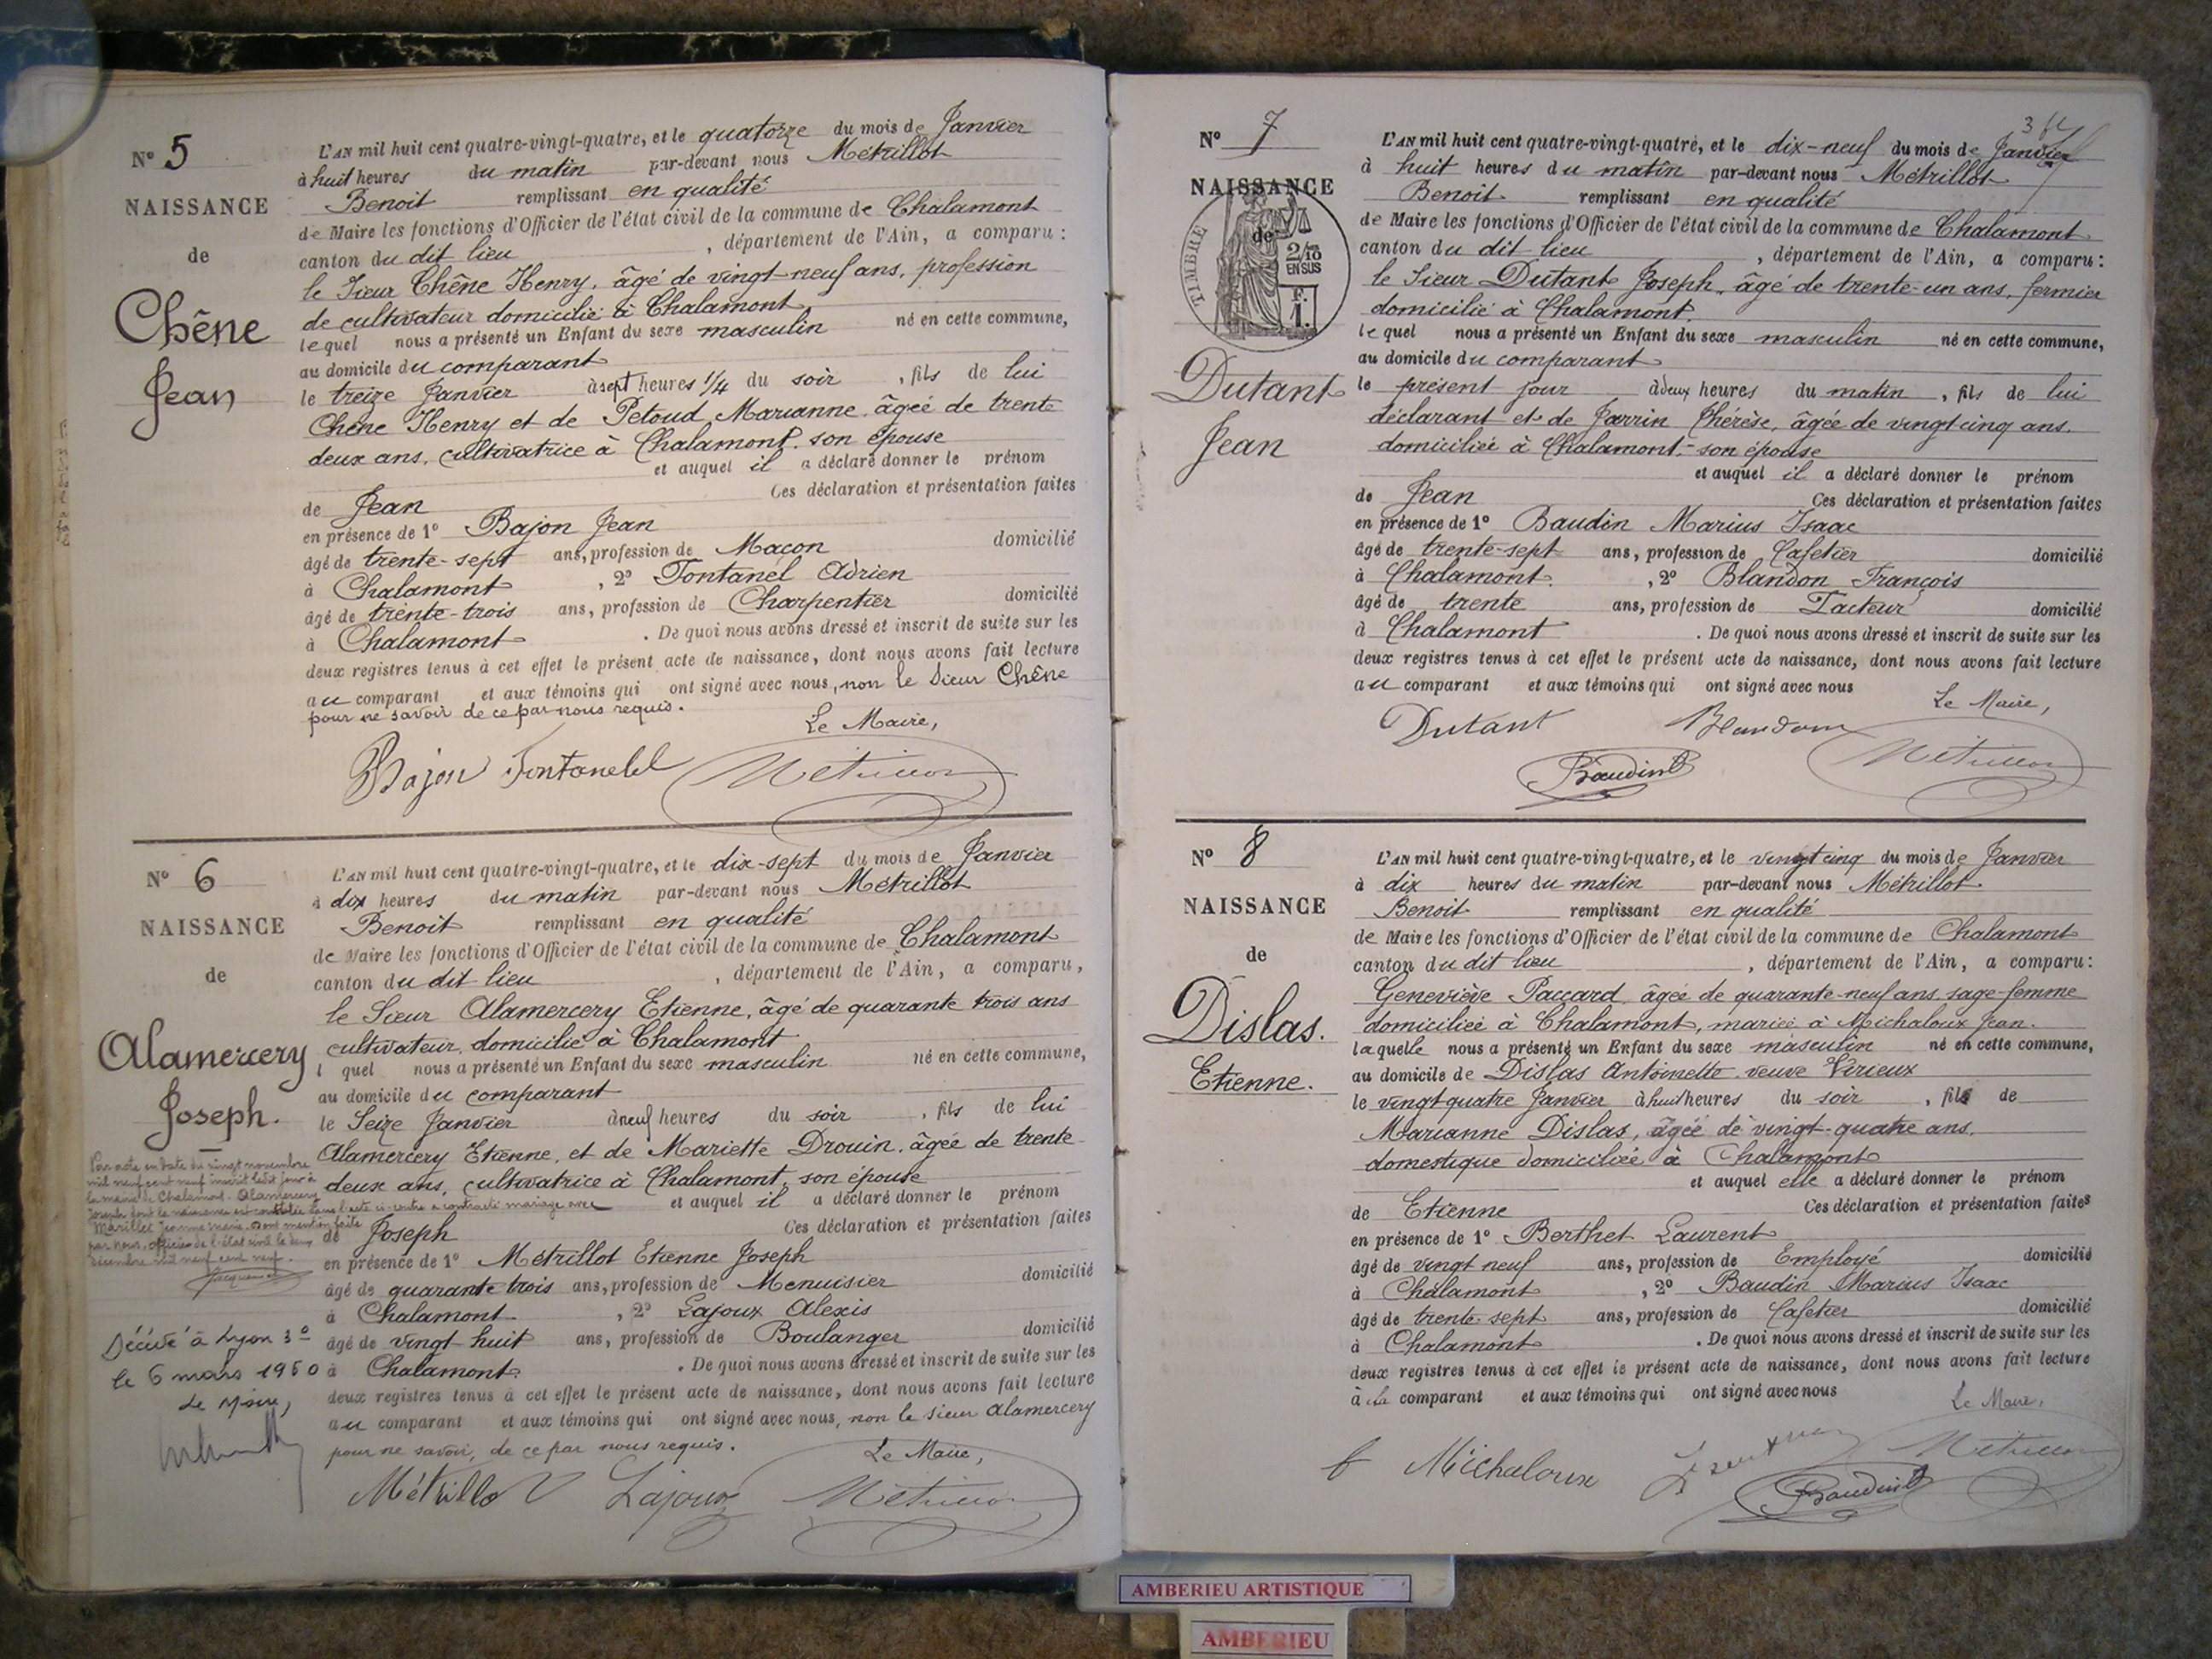 N° 5
NAISSANCE
de
Chêne
Jean
L'AN mil huit cent quatre-vingt-quatre, et le quatorze du mois de Janvier
à huit heures du matin par-devant nous Métrillot
Benoit remplissant en qualité
de Maire les fonctions d'Officier de l'état civil de la commune de Chalamont
canton du dit lieu, département de l'Ain, a comparu :
le Sieur Chêne Henry, âgé de vingt-neuf ans, profession
de cultivateur domicilié à Chalamont
lequel nous a présenté un Enfant du sexe masculin né en cette commune,
au domicile du comparant
le treize Janvier à sept heures 1/4 du soir, fils de lui
Chêne Henry et de Petoud Marianne, âgée de trente
deux ans, cultivatrice à Chalamont, son épouse
et auquel il a déclaré donner le prénom
de Jean Ces déclaration et présentation faites
en présence de 1° Bajon Jean
âgé de trente-sept ans, profession de Maçon domicilié
à Chalamont, 2° Fontanel Adrien
âgé de trente-trois ans, profession de Charpentier domicilié
à Chalamont. De quoi nous avons dressé et inscrit de suite sur les
deux registres tenus à cet effet le présent acte de naissance, dont nous avons fait lecture
au comparant et aux témoins qui ont signé avec nous, non le Sieur Chêne
pour ne savoir de ce par nous requis.
Le Maire,
Bajon Fontanel Métrillot
N° 6
NAISSANCE
de
Alamercery
Joseph.
L'AN mil huit cent quatre-vingt-quatre, et le dix-sept du mois de Janvier
à dix heures du matin par-devant nous Métrillot
Benoit remplissant en qualité
de Maire les fonctions d'Officier de l'état civil de la commune de Chalamont
canton du dit lieu, département de l'Ain, a comparu,
le Sieur Alamercery Etienne, âgé de quarante trois ans
cultivateur, domicilié à Chalamont
l quel nous a présenté un Enfant du sexe masculin né en cette commune,
au domicile du comparant
le Seize Janvier à neuf heures du soir, fils de lui
Alamercery Etienne, et de Mariette Drouin, âgée de trente-
deux ans, cultivatrice à Chalamont, son épouse
et auquel il a déclaré donner le prénom
de Joseph Ces déclaration et présentation faites
en présence de 1° Métrillot Etienne Joseph
âgé de quarante trois ans, profession de Menuisier domicilié
à Chalamont, 2° Lajoux Alexis
âgé de vingt huit ans, profession de Boulanger domicilié
à Chalamont. De quoi nous avons dressé et inscrit de suite sur les
deux registres tenus à cet effet le présent acte de naissance, dont nous avons fait lecture
au comparant et aux témoins qui ont signé avec nous, non le sieur Alamercery
pour ne savoir, de ce par nous requis.
Le Maire,
Métrillot Lajoux Métrillot
Par acte en date du vingt novembre
mil neuf cent neuf inscrit ledit jour à
la mairie de Chalamont. Alamercery
Joseph dont la naissance est constatée dans l'acte ci-contre a contracté mariage avec
Marillet Jeanne Marie. Dont mention faite
par nous, officier de l'état civil le deux
décembre mil neuf cent neuf.
Décédé à Lyon 3e
le 6 mars 1960
Le Maire,
N° 7
NAISSANCE
de
TIMBRE
2/10
EN SUS
F.
1.
Dutant
Jean
L'AN mil huit cent quatre-vingt-quatre, et le dix-neuf du mois de Janvier
à huit heures du matin par-devant nous Métrillot
Benoit remplissant en qualité
de Maire les fonctions d'Officier de l'état civil de la commune de Chalamont
canton du dit lieu, département de l'Ain, a comparu :
le Sieur Dutant Joseph, âgé de trente-un ans, fermier
domicilié à Chalamont.
lequel nous a présenté un Enfant du sexe masculin né en cette commune,
au domicile du comparant
le présent jour à deux heures du matin, fils de lui
déclarant et de Jarrin Thérèse, âgée de vingt cinq ans.
domiciliée à Chalamont - son épouse
et auquel il a déclaré donner le prénom
de Jean Ces déclaration et présentation faites
en présence de 1° Baudin Marius Isaac
âgé de trente-sept ans, profession de Cafetier domicilié
à Chalamont. , 2° Blandon François
âgé de trente ans, profession de Facteur domicilié
à Chalamont. De quoi nous avons dressé et inscrit de suite sur les
deux registres tenus à cet effet le présent acte de naissance, dont nous avons fait lecture
au comparant et aux témoins qui ont signé avec nous
Le Maire,
Dutant Blandon
Baudin Métrillot
N° 8
NAISSANCE
de
Dislas.
Etienne.
L'AN mil huit cent quatre-vingt-quatre, et le vingt cinq du mois de Janvier
à dix heures du matin par-devant nous Métrillot
Benoit remplissant en qualité
de Maire les fonctions d'Officier de l'état civil de la commune de Chalamont
canton du dit lieu, département de l'Ain, a comparu :
Geneviève Paccard, âgée de quarante-neuf ans, sage-femme
domiciliée à Chalamont, mariée à Michaloux Jean.
laquelle nous a présenté un Enfant du sexe masculin né en cette commune,
au domicile de Dislas Antoinette veuve Virieux
le vingt quatre Janvier à huit heures du soir, fils de
Marianne Dislas, âgée de vingt-quatre ans,
domestique domiciliée à Chalamont
et auquel elle a déclaré donner le prénom
de Etienne Ces déclaration et présentation faites
en présence de 1° Berthet Laurent
âgé de vingt neuf ans, profession de Employé domicilié
à Chalamont, 2° Baudin Marius Isaac
âgé de trente-sept ans, profession de Cafetier domicilié
à Chalamont. De quoi nous avons dressé et inscrit de suite sur les
deux registres tenus à cet effet le présent acte de naissance, dont nous avons fait lecture
à la comparant et aux témoins qui ont signé avec nous
Le Maire,
f Michaloux Métrillot
Baudin
AMBERIEU ARTISTIQUE
AMBERIEU